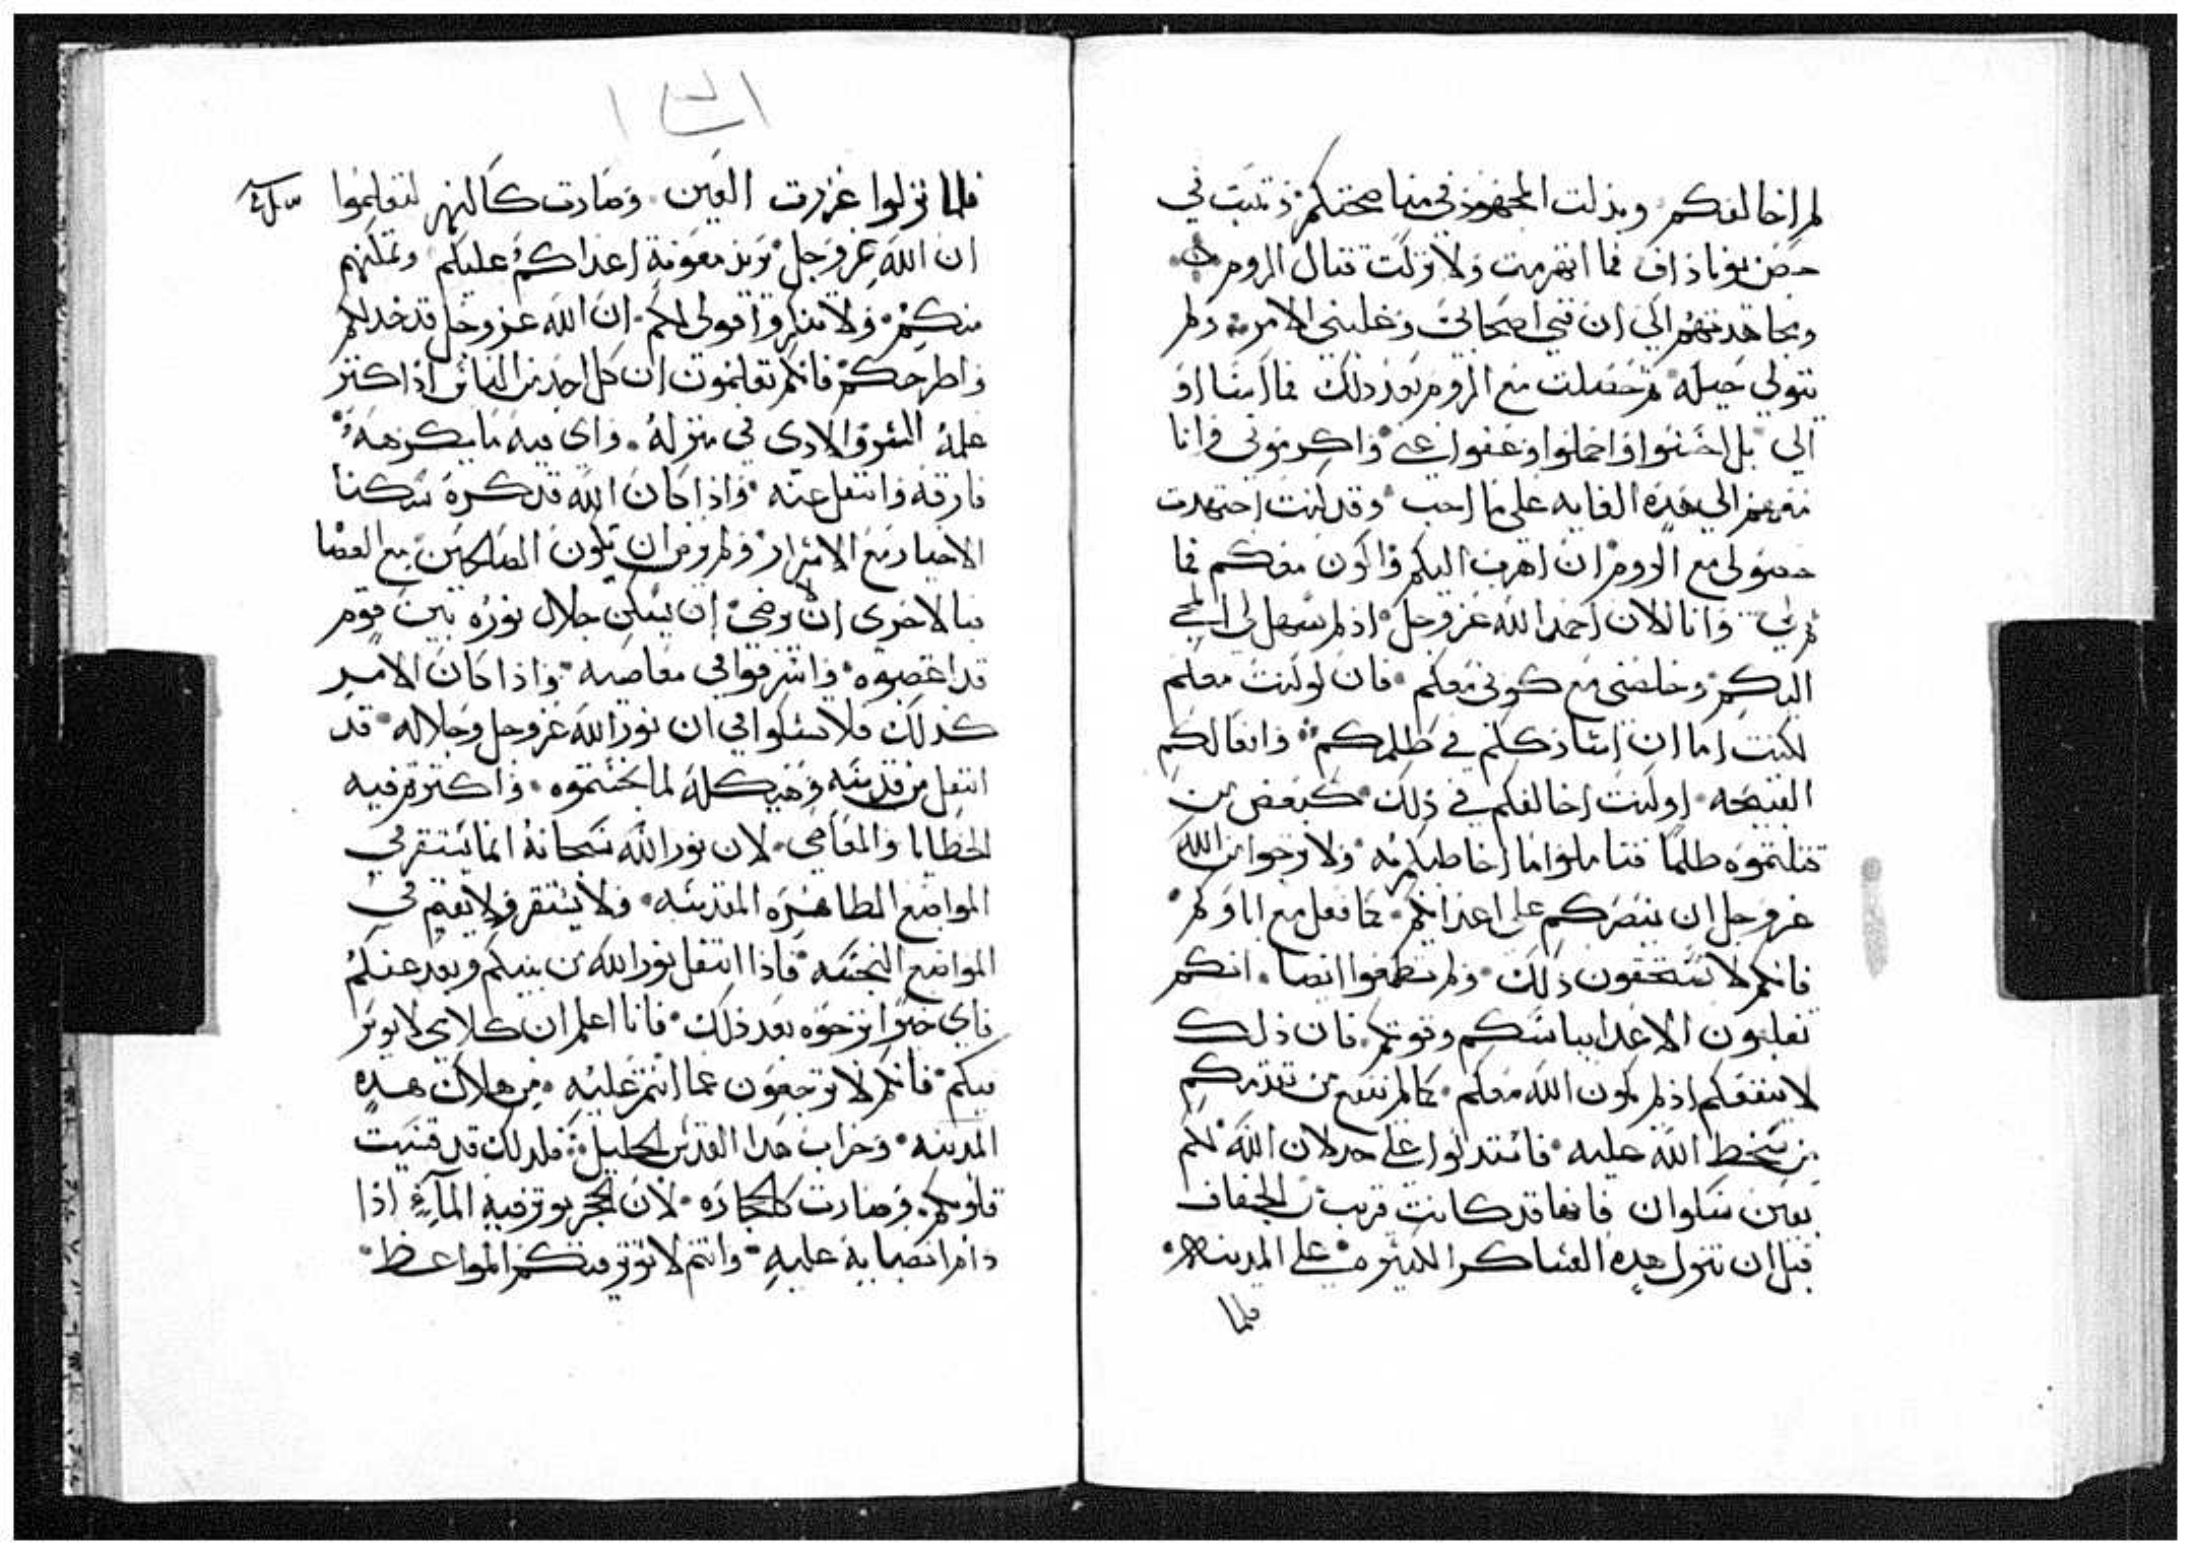 لم اخالفكم وبذلت المجهود في مناصحتكم وتبت في
حصن يوناداف فما انهزمت ولا تركت قتال الروم
ومجاهدتهم الي ان فني اصحابي وغلبني الامر ولم
تتولي حيله ثم حصلت مع الروم بعد ذلك فما اسا او
الي بل احسنوا واجملوا وعفوا عني واكرموني وانا
معهم الي هده الغايه علي ما احب وقد كنت اجتهدت
حصولي مع الروم ان اهرب اليكم واكون معكم فما
تم لي وانا الان احمد الله عز وجل اذ لم يسهل لي المجي
اليكم وخلصني من كوني معكم فان لو كنت معكم
لكنت اما ان اشاركم في ظلمكم وافعالكم
القبيحه او كنت اخالفكم في ذلك كبعض من
قتلتموه ظلما فتاملوا ما اخاطبكم به ولا ترجوا من الله
عز وجل ان ينصركم علي اعدايكم كما فعل مع اباوكم
فانكم لا تستحقون ذلك ولا تطمعوا ايضا انكم
تغلبون الاعدا بباسكم وقوتكم فان ذلك
لا ينفعكم اذ لم يكون الله معكم كما لم ينتفع من تقدمكم
من سخط الله عليه فاستدلوا علي خدلان الله لكم
بعين سلوان فانها قد كانت قربت من الجفاف
قبل ان تنزل هده العساكر الكثيره علي المدينه
فلما
فلما نزلوا غزرت العين وصارت كالنهر لتعلموا
ان الله عز وجل يريد معونة اعداكم عليكم وتمكنهم
منكم ولا تنكروا قولي لكم ان الله عز وجل قد خدلكم
واطرحكم فانكم تعلمون ان كل احد من الناس اذا كتر
عليه الشر والادي في منزله وراي فيه ما يكرهه
فارقه وانتقل عنه واذا كان الله قد كره سكنا
الاخيار مع الاشرار ولم يرض ان يكون الصالحين مع العصا
فبالاحري ان يرضي ان يسكن جلال نوره بين قوم
قد اغضبوه واشرفوا في معاصيه واذا كان الامر
كدلك فلا تشكوا في ان نور الله عز وجل وجلاله قد
انتقل من قدسه وهيكله لما نجستموه واكترتم فيه
الخطايا والمعاصي لان نور الله سبحانه انما يستقر في
المواضع الطاهره المقدسه ولا يستقر ولا يقيم في
المواضع النجسه فاذا انتقل نور الله من بينكم وبعد عنكم
فاي خيرا ترجوه بعد ذلك فانا اعلم ان كلامي لا يوتر
فيكم فانكم لا ترجعون عما انتم عليه من هلاك هده
المدينه وخراب هدا القدس الجليل فلدلك قد قسيت
قلوبكم وصارت كالحجاره لان الحجر يوتر فيه الماء اذا
دام انصبابه عليه وانتم لا توتر فيكم المواعظ